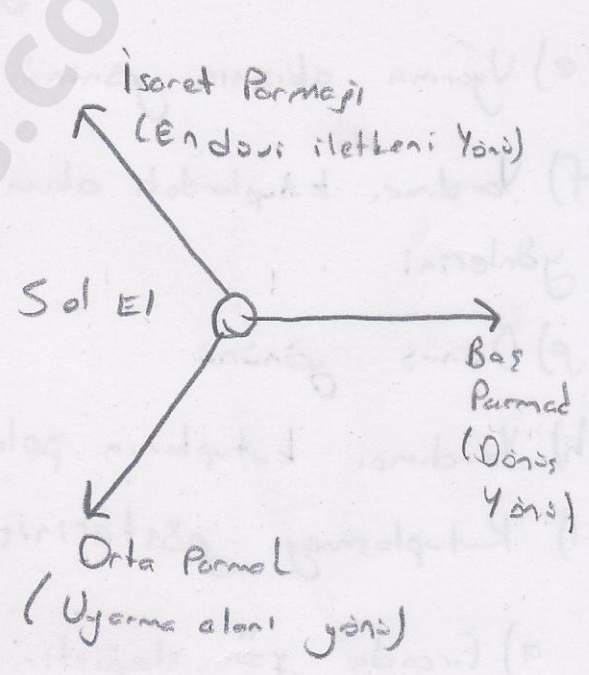 İsaret Parmağı
(Endüvi iletkeni Yönü)
Sol El
Baş
Parmak
(Dönüş
Yönü)
Orta Parmak
(Uyarma alanı yönü)